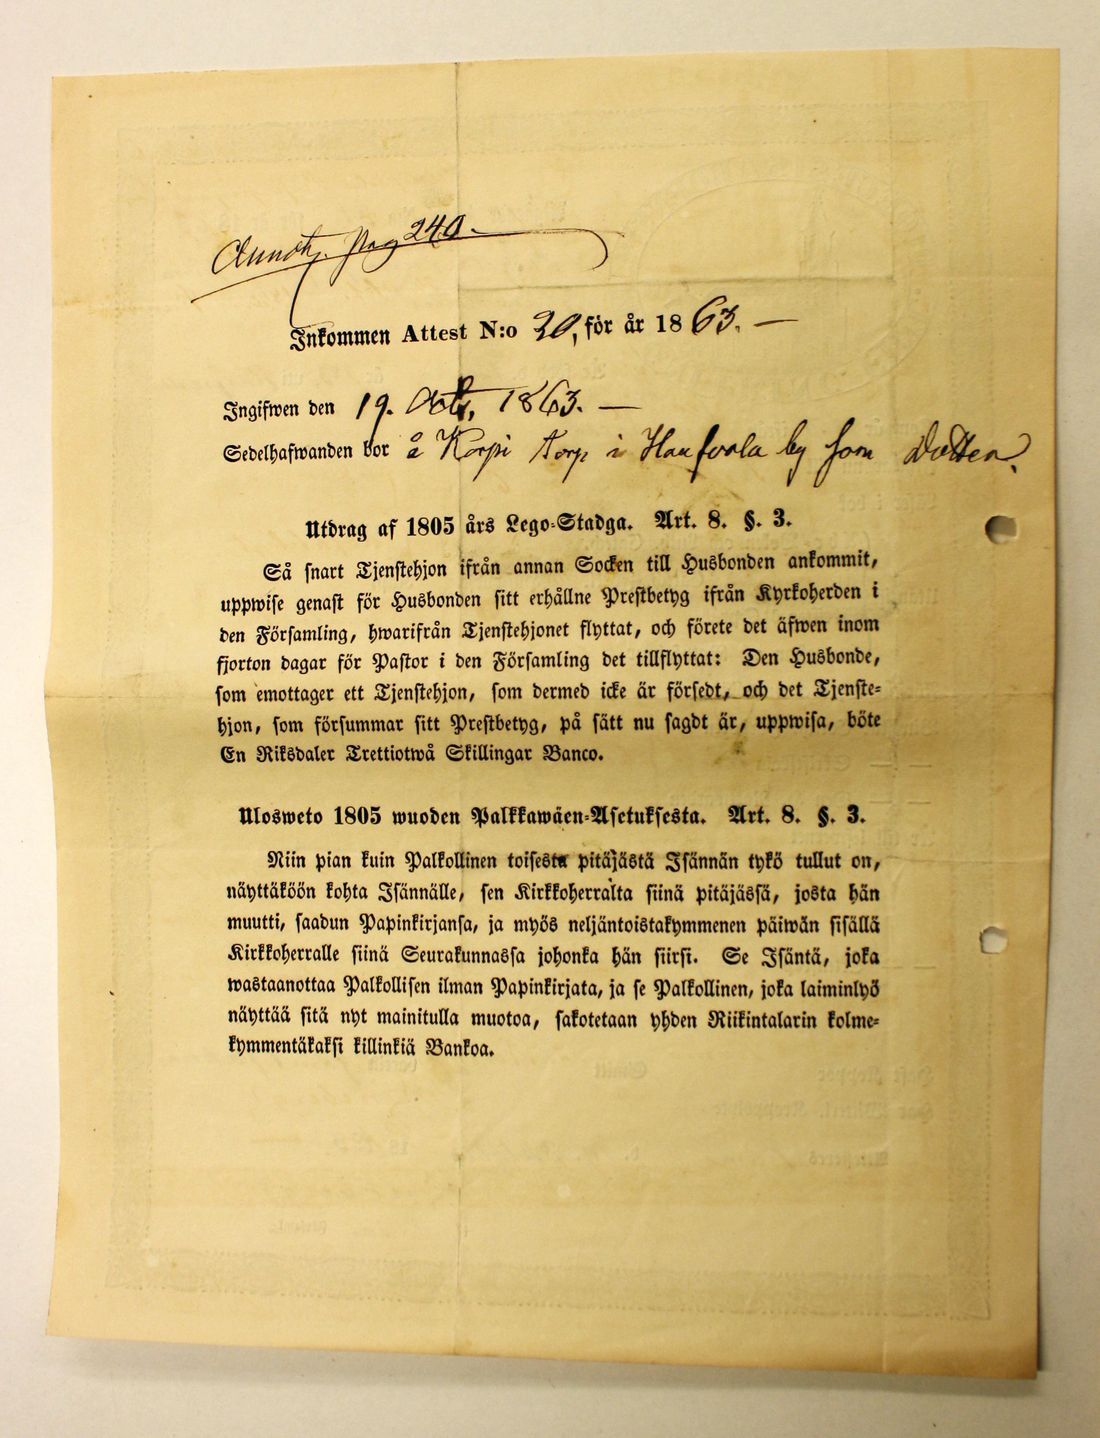 pag 240.
Inkommen Attest N:o 20, för år 1863. —
Ingifwen den 19. Octb, 1863. —
Sedelhafwanden bor å Korpi torp i Haufvola by som Dotter.
Utdrag af 1805 års Lego-Stadga. Art. 8. §. 3.
Så snart Tjenstehjon ifrån annan Socken till Husbonden ankommit,
uppwise genast för Husbonden sitt erhållne Prestbetyg ifrån Kyrkoherden i
den Församling, hwarifrån Tjenstehjonet flyttat, och förete det äfwen inom
fjorton dagar för Pastor i den Församling det tillflyttat: Den Husbonde,
som emottager ett Tjenstehjon, som dermed icke är försedt, och det Tjenste-
hjon, som försummar sitt Prestbetyg, på sätt nu sagdt är, uppwisa, böte
En Riksdaler Trettiotwå Skillingar Banco.
Ulosweto 1805 wuoden Palkkawäen-Asetuksesta. Art. 8. §. 3.
Niin pian kuin Palkollinen toisesta pitäjästä Isännän tykö tullut on,
näyttäköön kohta Isännälle, sen Kirkkoherralta siinä pitäjässä, josta hän
muutti, saadun Papinkirjansa, ja myös neljäntoistakymmenen päiwän sisällä
Kirkkoherralle siinä Seurakunnassa johonka hän siirsi. Se Isäntä, joka
wastaanottaa Palkollisen ilman Papinkirjata, ja se Palkollinen, joka laiminlyö
näyttää sitä nyt mainitulla muotoa, sakotetaan yhden Riikintalarin kolme-
kymmentäkaksi killinkiä Bankoa.